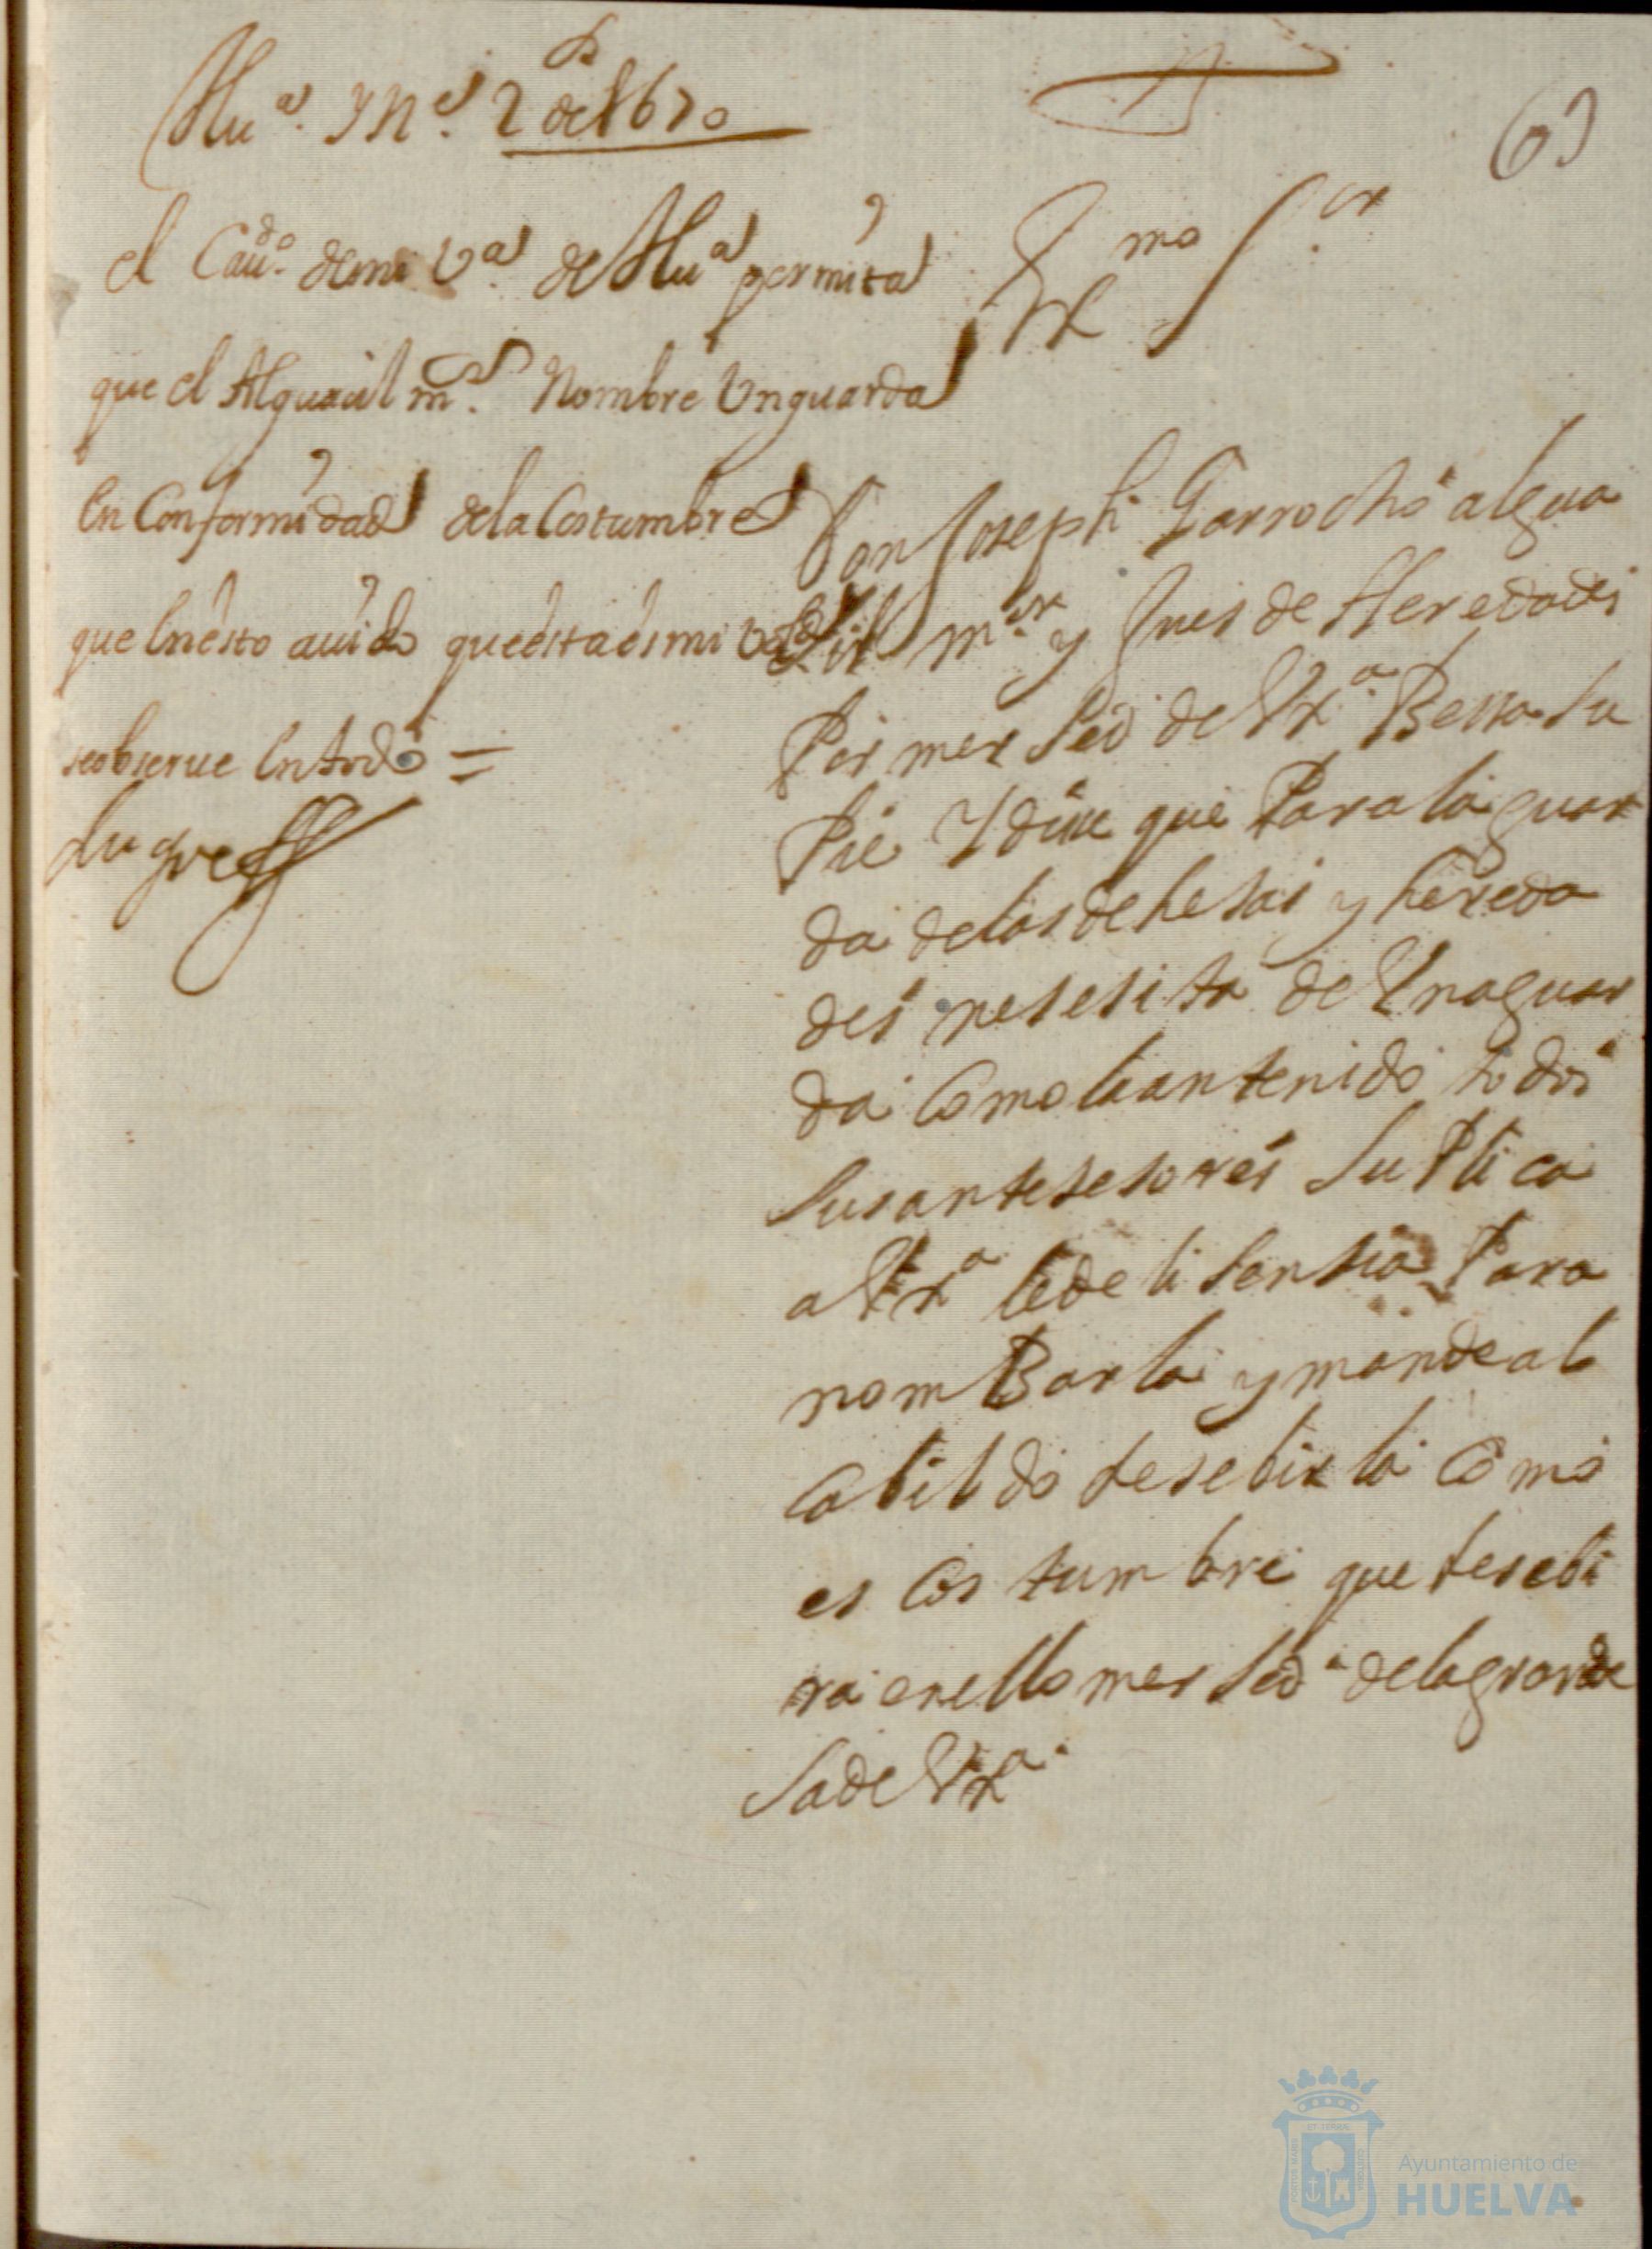 Hu.ª y En.º 2 de 1670
63
el Cau.do de mi V.ª de Hu.ª permita
que el Alguacil m.r Nombre Un guarda
En Conformidad de la Costumbre
que En esto auido que esta es mi Vol.d
se obserue En todo =
Ex.mo S.or
Don Joseph Garrocho algua
sil m.or y Jues de Heredades
Por mersed de V.Ex.ª Bessa su
Pie Y dise que Para la guar
da de las dehesas y hereda
des nesesita de Una guar
da Como la an tenido todos
sus antesesores suPlica
a V.Ex.ª le de lisensia Para
nomBarla y mande al
Cabildo resebirla Como
es Costumbre que resebi
ra en ello mersed de la grande
sa de V.Ex.ª
Ayuntamiento de
HUELVA